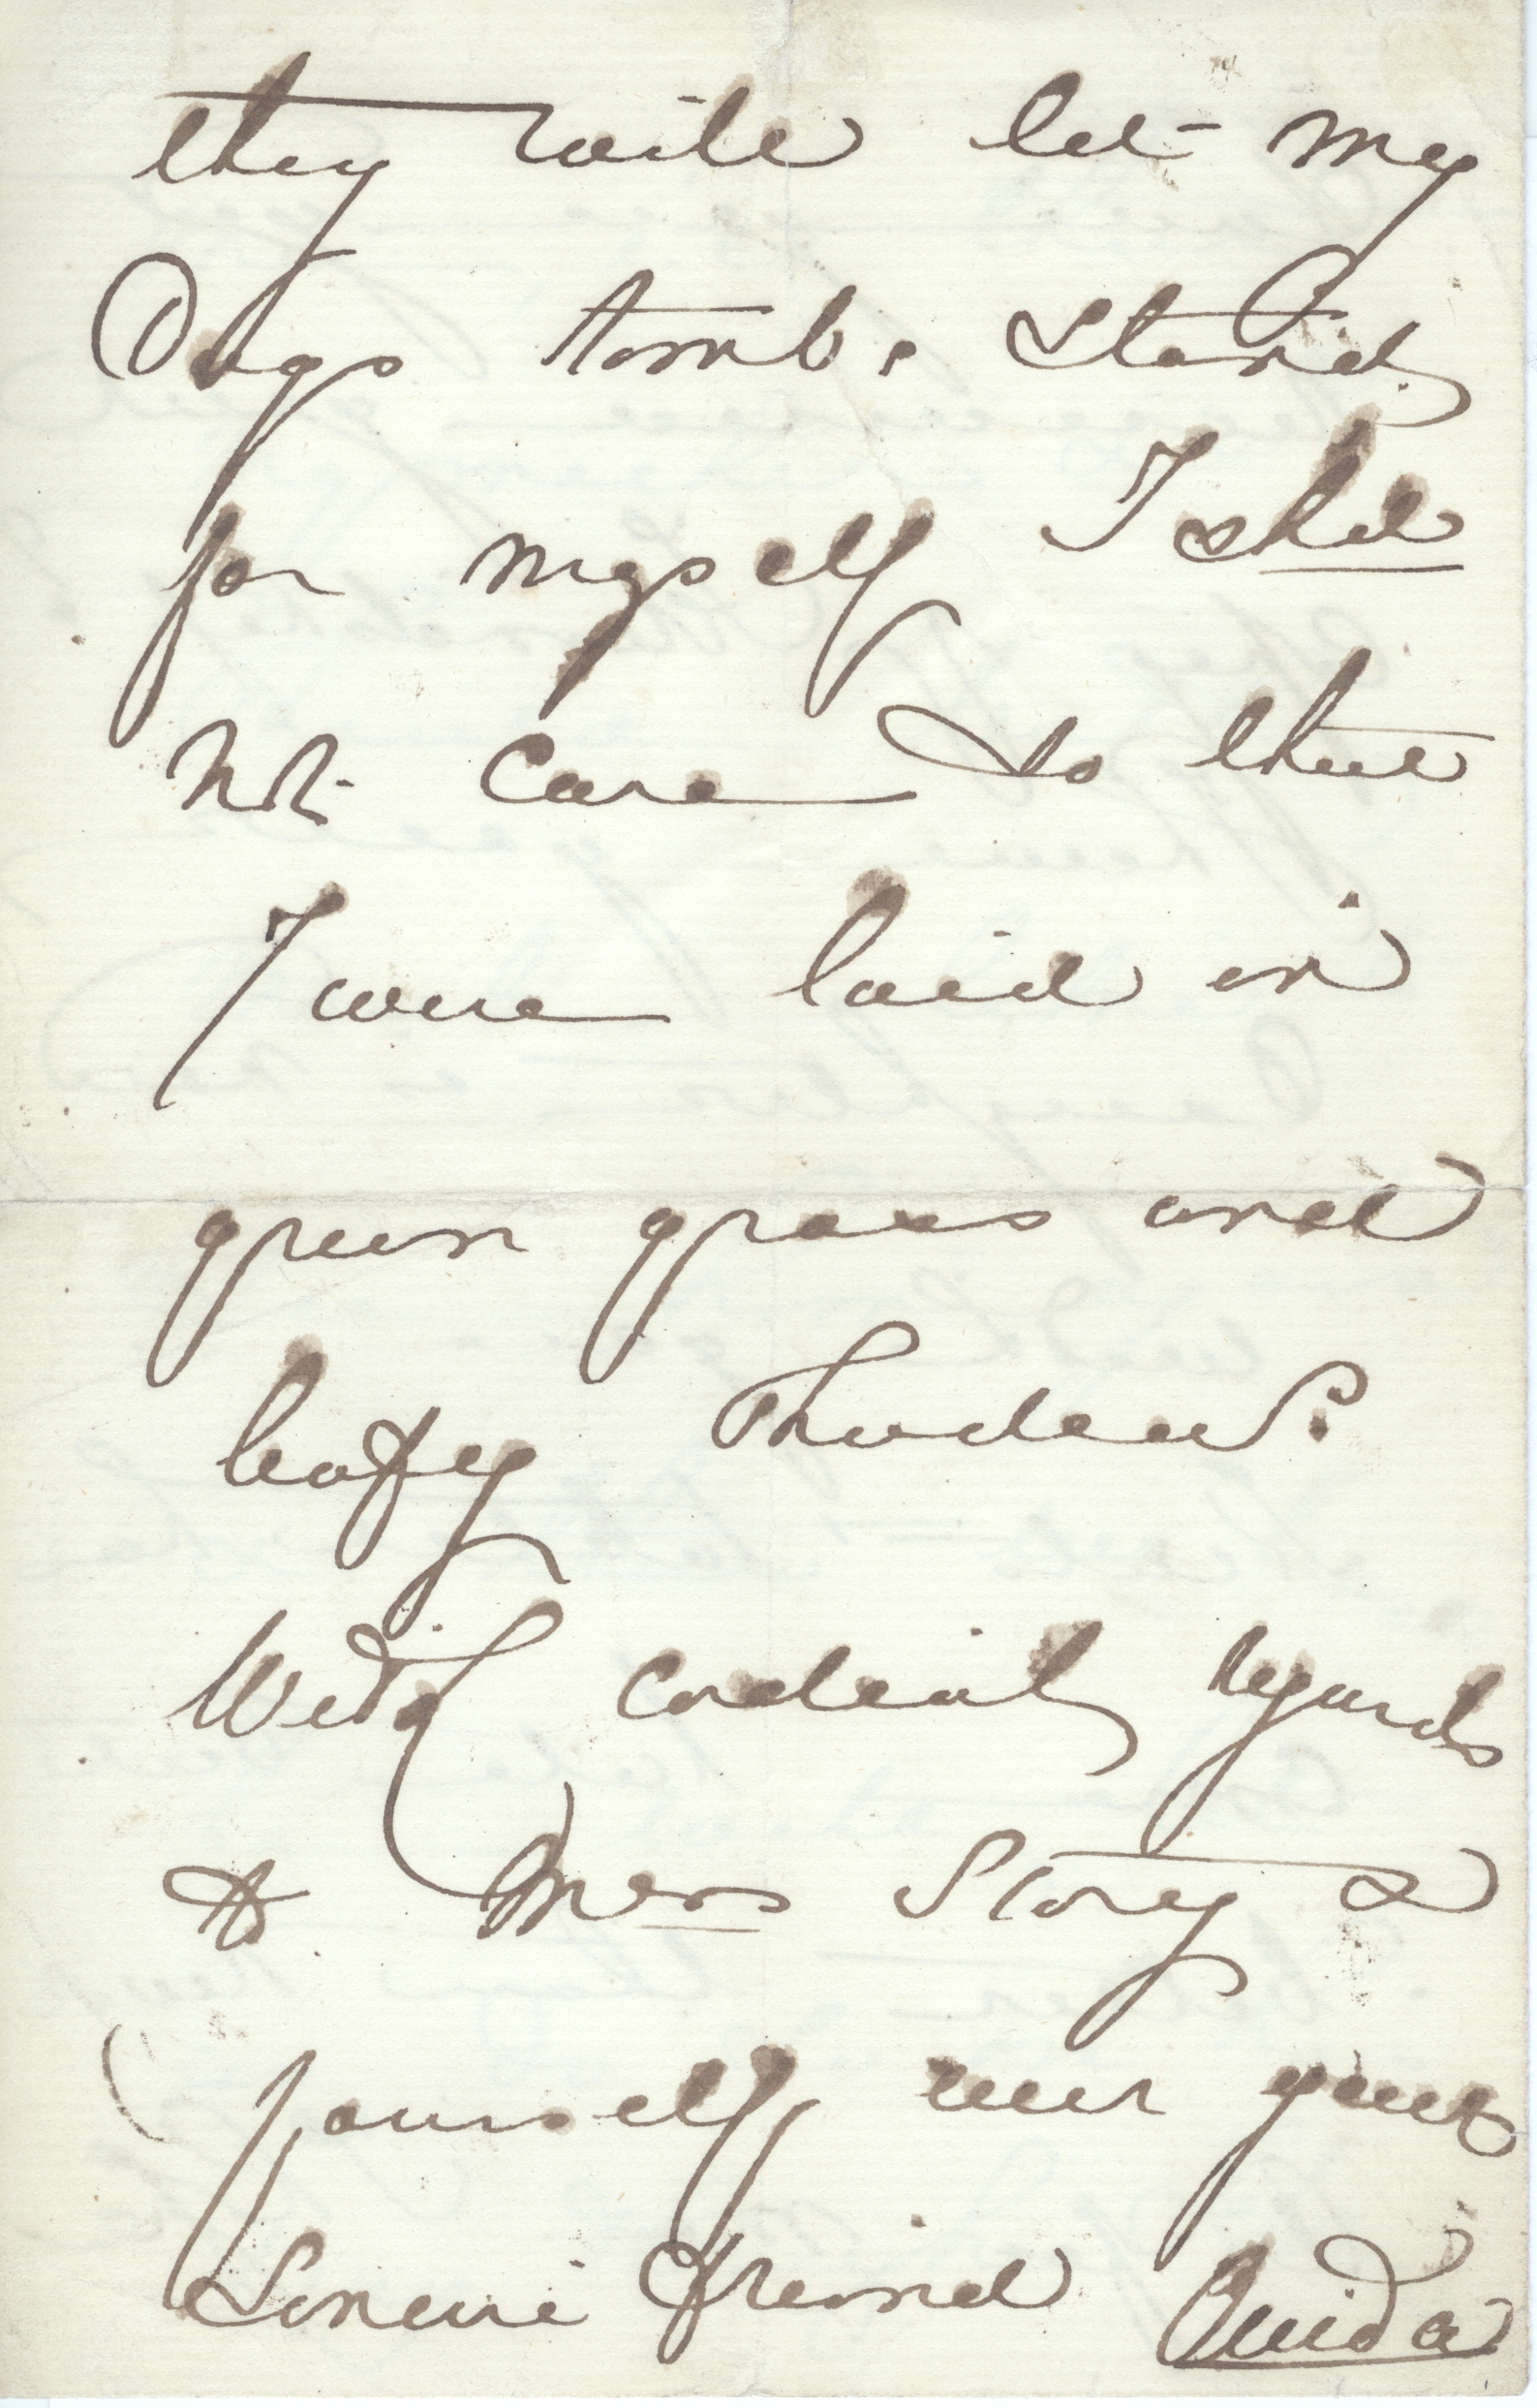 they will let my
Dogs tombs stand
for myself I shd
not care so that
I were laid in
green grass and
leafy shadows.
With cordial regards
to Mrs Story &
yourself, ever yours
Sincere friend Ouida